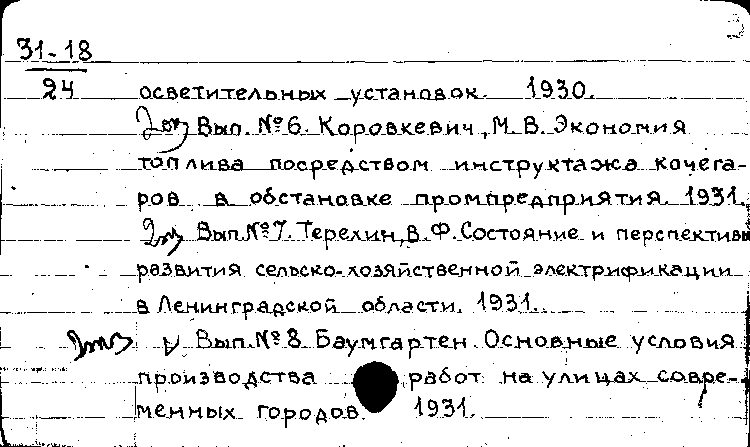 3
31-18
24
осветительных установок. 1930.
2экз Вып. №6. Коровкевич, М. В. Экономия
топлива посредством инструктажа кочега-
ров в обстановке промпредприятия. 1931.
2экз Вып. №7. Терехин, В. Ф. Состояние и перспективы
развития сельско-хозяйственной электрификации
в Ленинградской области. 1931.
2экз V Вып. №8. Баумгартен. Основные условия
производства работ на улицах совре-
менных городов. 1931.